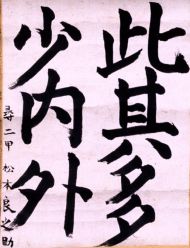 此其多
少内外
尋二甲 松本良之助